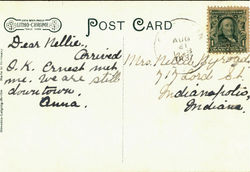 LITHO-CHROME
POST CARD
AUG
Dear Nellie,
Arrived
O.K. Ernest met
me. We are still
downtown.
Anna.
Mrs. Nellie
Lord St
Indianapolis,
Indiana.